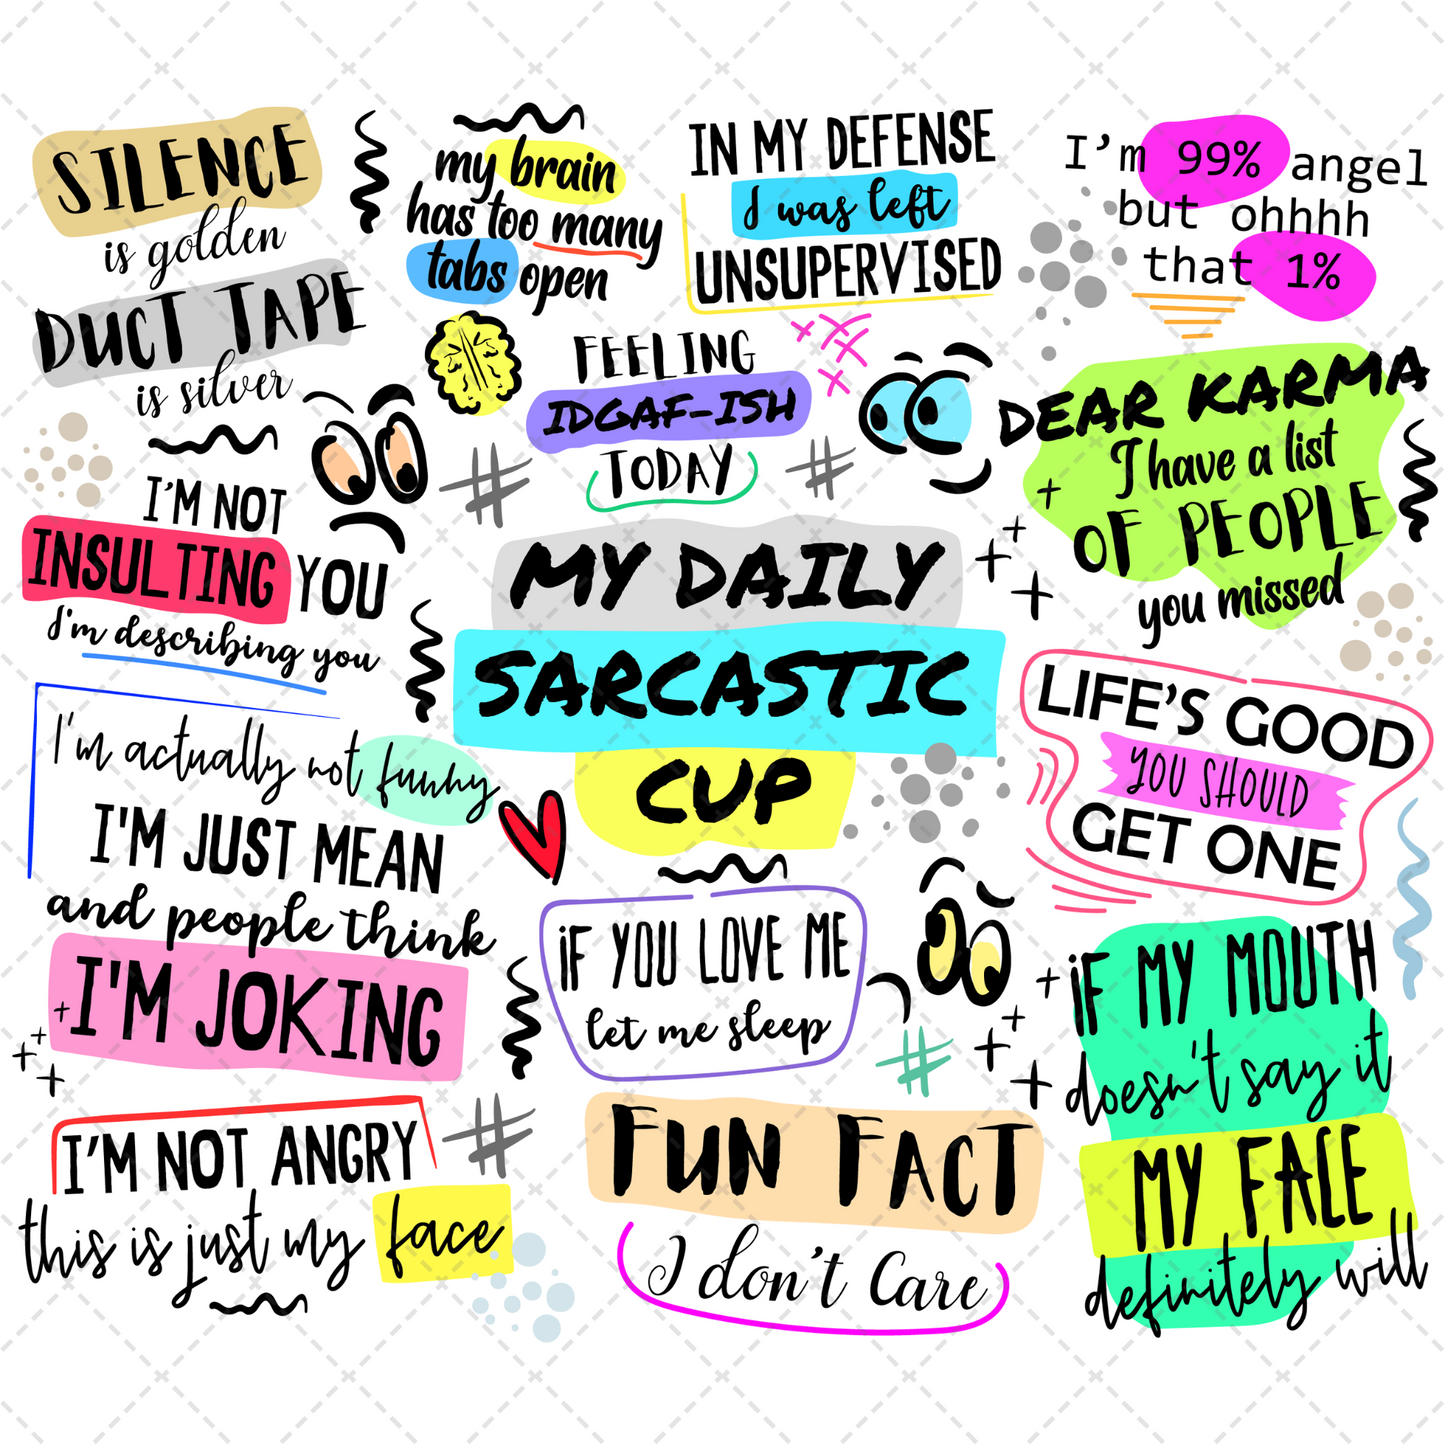 SILENCE
is golden
DUCT TAPE
is silver
my brain
has too many
tabs open
IN MY DEFENSE
I was left
UNSUPERVISED
I'm 99% angel
but ohhhh
that 1%
FEELING
IDGAF-ISH
TODAY
DEAR KARMA
I have a list
OF PEOPLE
you missed
I'M NOT
INSULTING YOU
I'm describing you
MY DAILY
SARCASTIC
CUP
LIFE'S GOOD
YOU SHOULD
GET ONE
I'm actually not funny
I'M JUST MEAN
and people think
I'M JOKING
iF YOU LOVE ME
let me sleep
iF MY MOUTH
doesn't say it
MY FACE
definitely will
I'M NOT ANGRY
this is just my face
FUN FACT
I don't Care